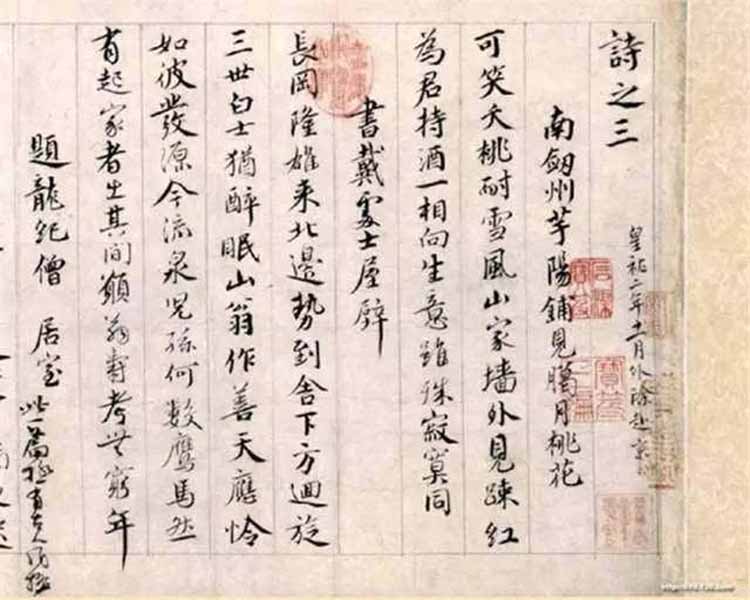 詩之三
皇祐二年十一月外除赴京
南劔州芋陽鋪見臘月桃花
可笑夭桃耐雪風山家墻外見踈紅
為君持酒一相向生意雖殊寂寞同
書戴處士屋壁
長岡隆雄來北邊勢到舍下方迴旋
三世白士猶醉眠山翁作善天應憐
如彼發源今流泉兒孫何數鷹馬然
有起家者出其間願翁壽考無窮年
題龍紀僧居室此一篇極有古人風格